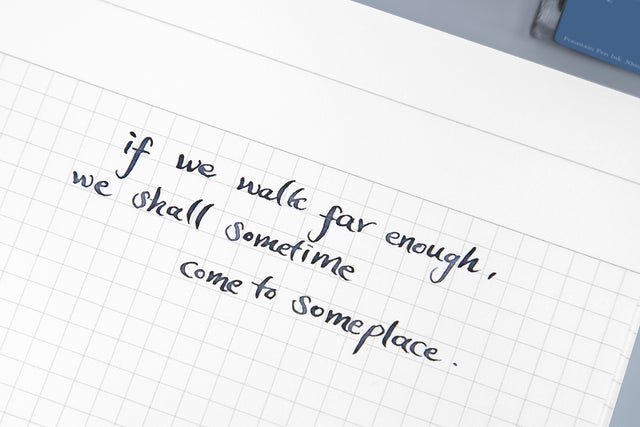 if we walk far enough,
we shall sometime
come to someplace.
Fountain Pen Ink